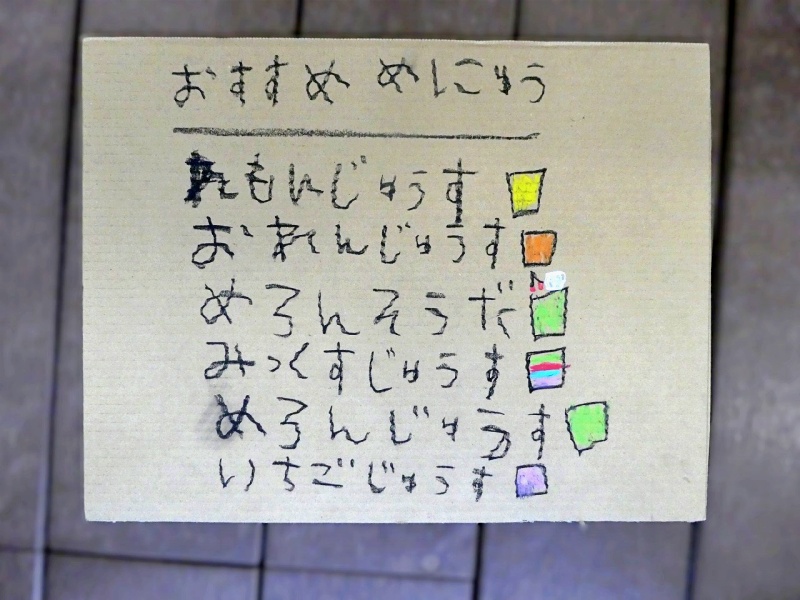 おすすめ めにゅう
れもんじゅうす
おれんじゅうす
めろんそうだ
みっくすじゅうす
めろんじゅうす
いちごじゅうす